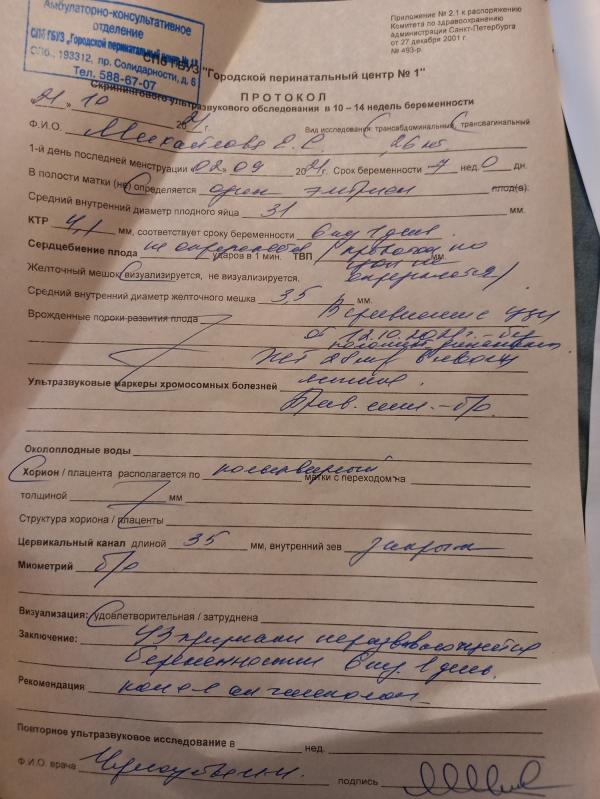 Амбулаторно-консультативное
отделение
СПб ГБУЗ „Городской перинатальный центр № 1"
СПб., 193312, пр. Солидарности, д. 6
Тел. 588-67-07
Приложение № 2.1 к распоряжению
Комитета по здравоохранению
администрации Санкт-Петербурга
от 27 декабря 2001 г.
№ 493-р.
СПб ГБУЗ "Городской перинатальный центр № 1"
ПРОТОКОЛ
Скринингового ультразвукового обследования в 10 – 14 недель беременности
21 » 10 2021 г.
Вид исследования: трансабдоминальный, трансвагинальный
Ф.И.О. Е.С. 26
1-й день последней менструации 02 » 09 2021 г. Срок беременности 7 нед. 0 дн.
В полости матки (не) определяется один эмбрион плод(а):
Средний внутренний диаметр плодного яйца 31 мм.
КТР 4,1 мм, соответствует сроку беременности 6 нед 1 день
Сердцебиение плода не определяется ударов в 1 мин. ТВП
Желточный мешок визуализируется, не визуализируется.
Средний внутренний диаметр желточного мешка 3,5 мм.
В сравнении с УЗИ
Врожденные пороки развития плода
от 12.10.2021г. – без
Ультразвуковые маркеры хромосомных болезней
Прав. – б/о.
Околоплодные воды
Хорион / плацента располагается по кольцевидный матки с переходом на
толщиной мм
Структура хориона / плаценты
Цервикальный канал длиной 35 мм, внутренний зев закрыт
Миометрий б/о
Визуализация: удовлетворительная / затруднена
Заключение: УЗ признаки неразвивающейся
беременности 6 нед. 1 день.
Рекомендация
Повторное ультразвуковое исследование в нед.
Ф.И.О. врача подпись